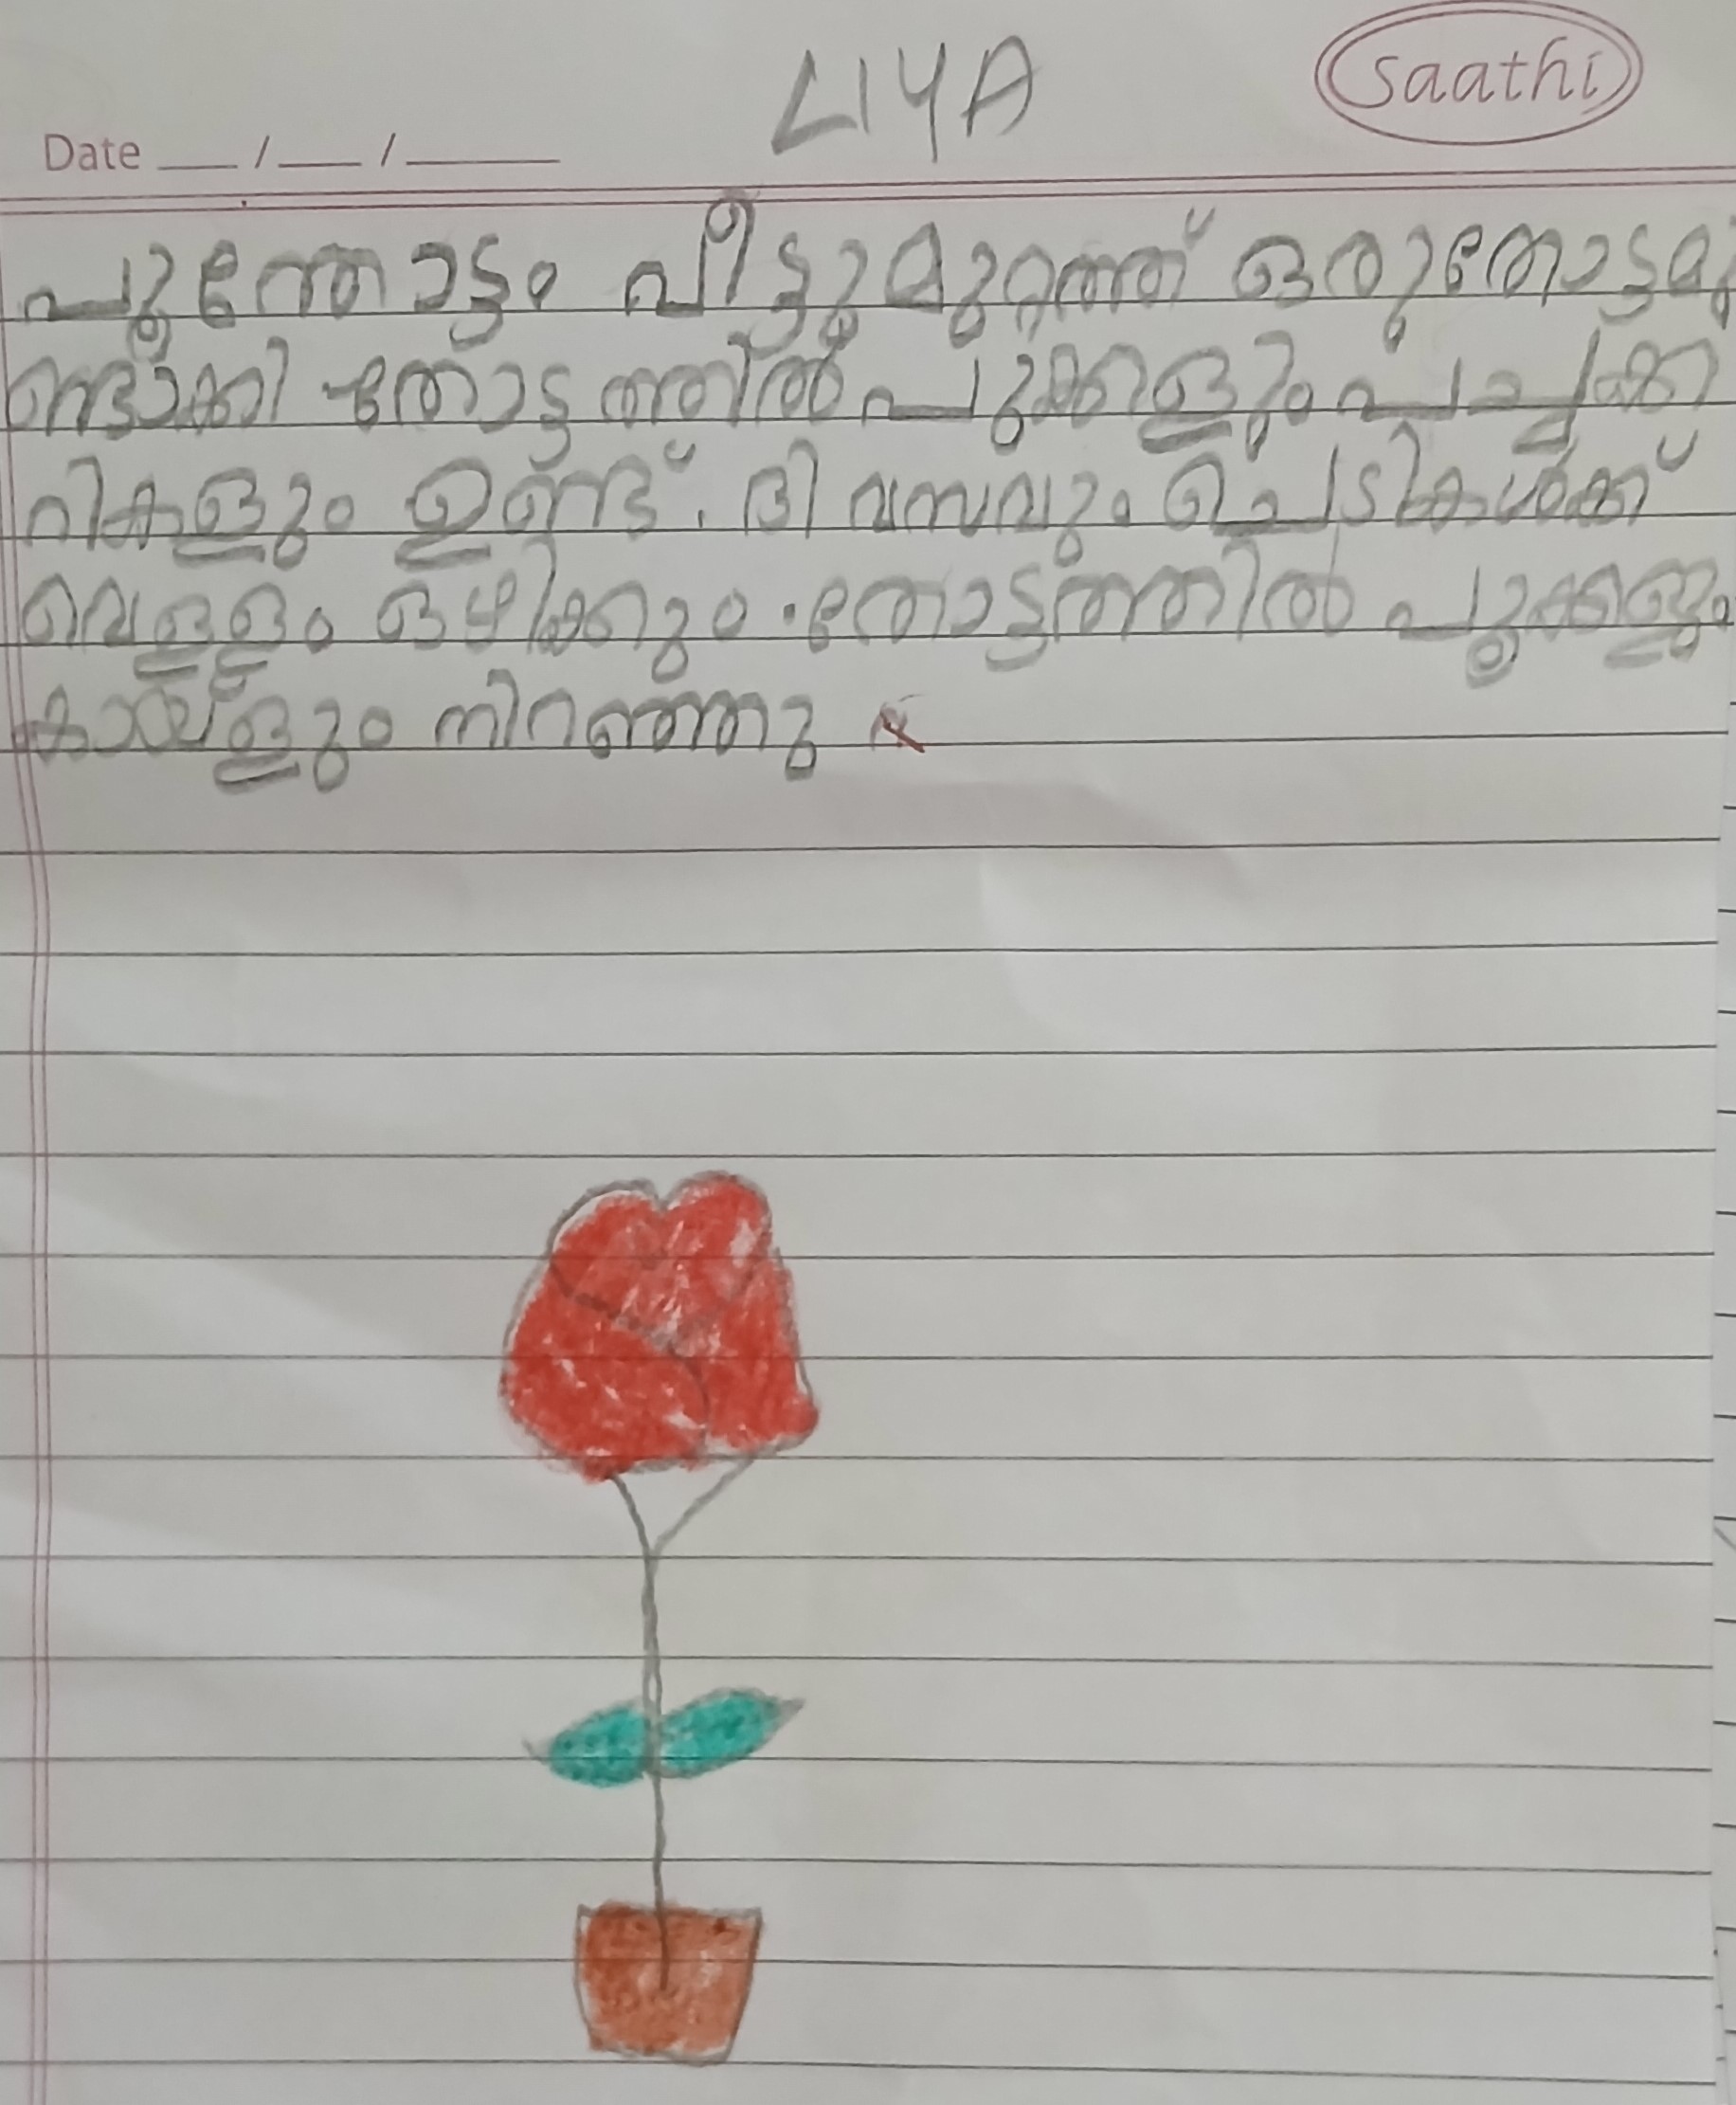 LIYA
saathi
Date __/__/____
പൂന്തോട്ടം വീട്ടുമുറ്റത്ത് ഒരു തോട്ടമു
ണ്ടാക്കി തോട്ടത്തിൽ പൂക്കളും പച്ചക്ക
റികളും ഉണ്ട്. ദിവസവും ചെടികൾക്ക്
വെള്ളം ഒഴിക്കും. തോട്ടത്തിൽ പൂക്കളും
നിറഞ്ഞു